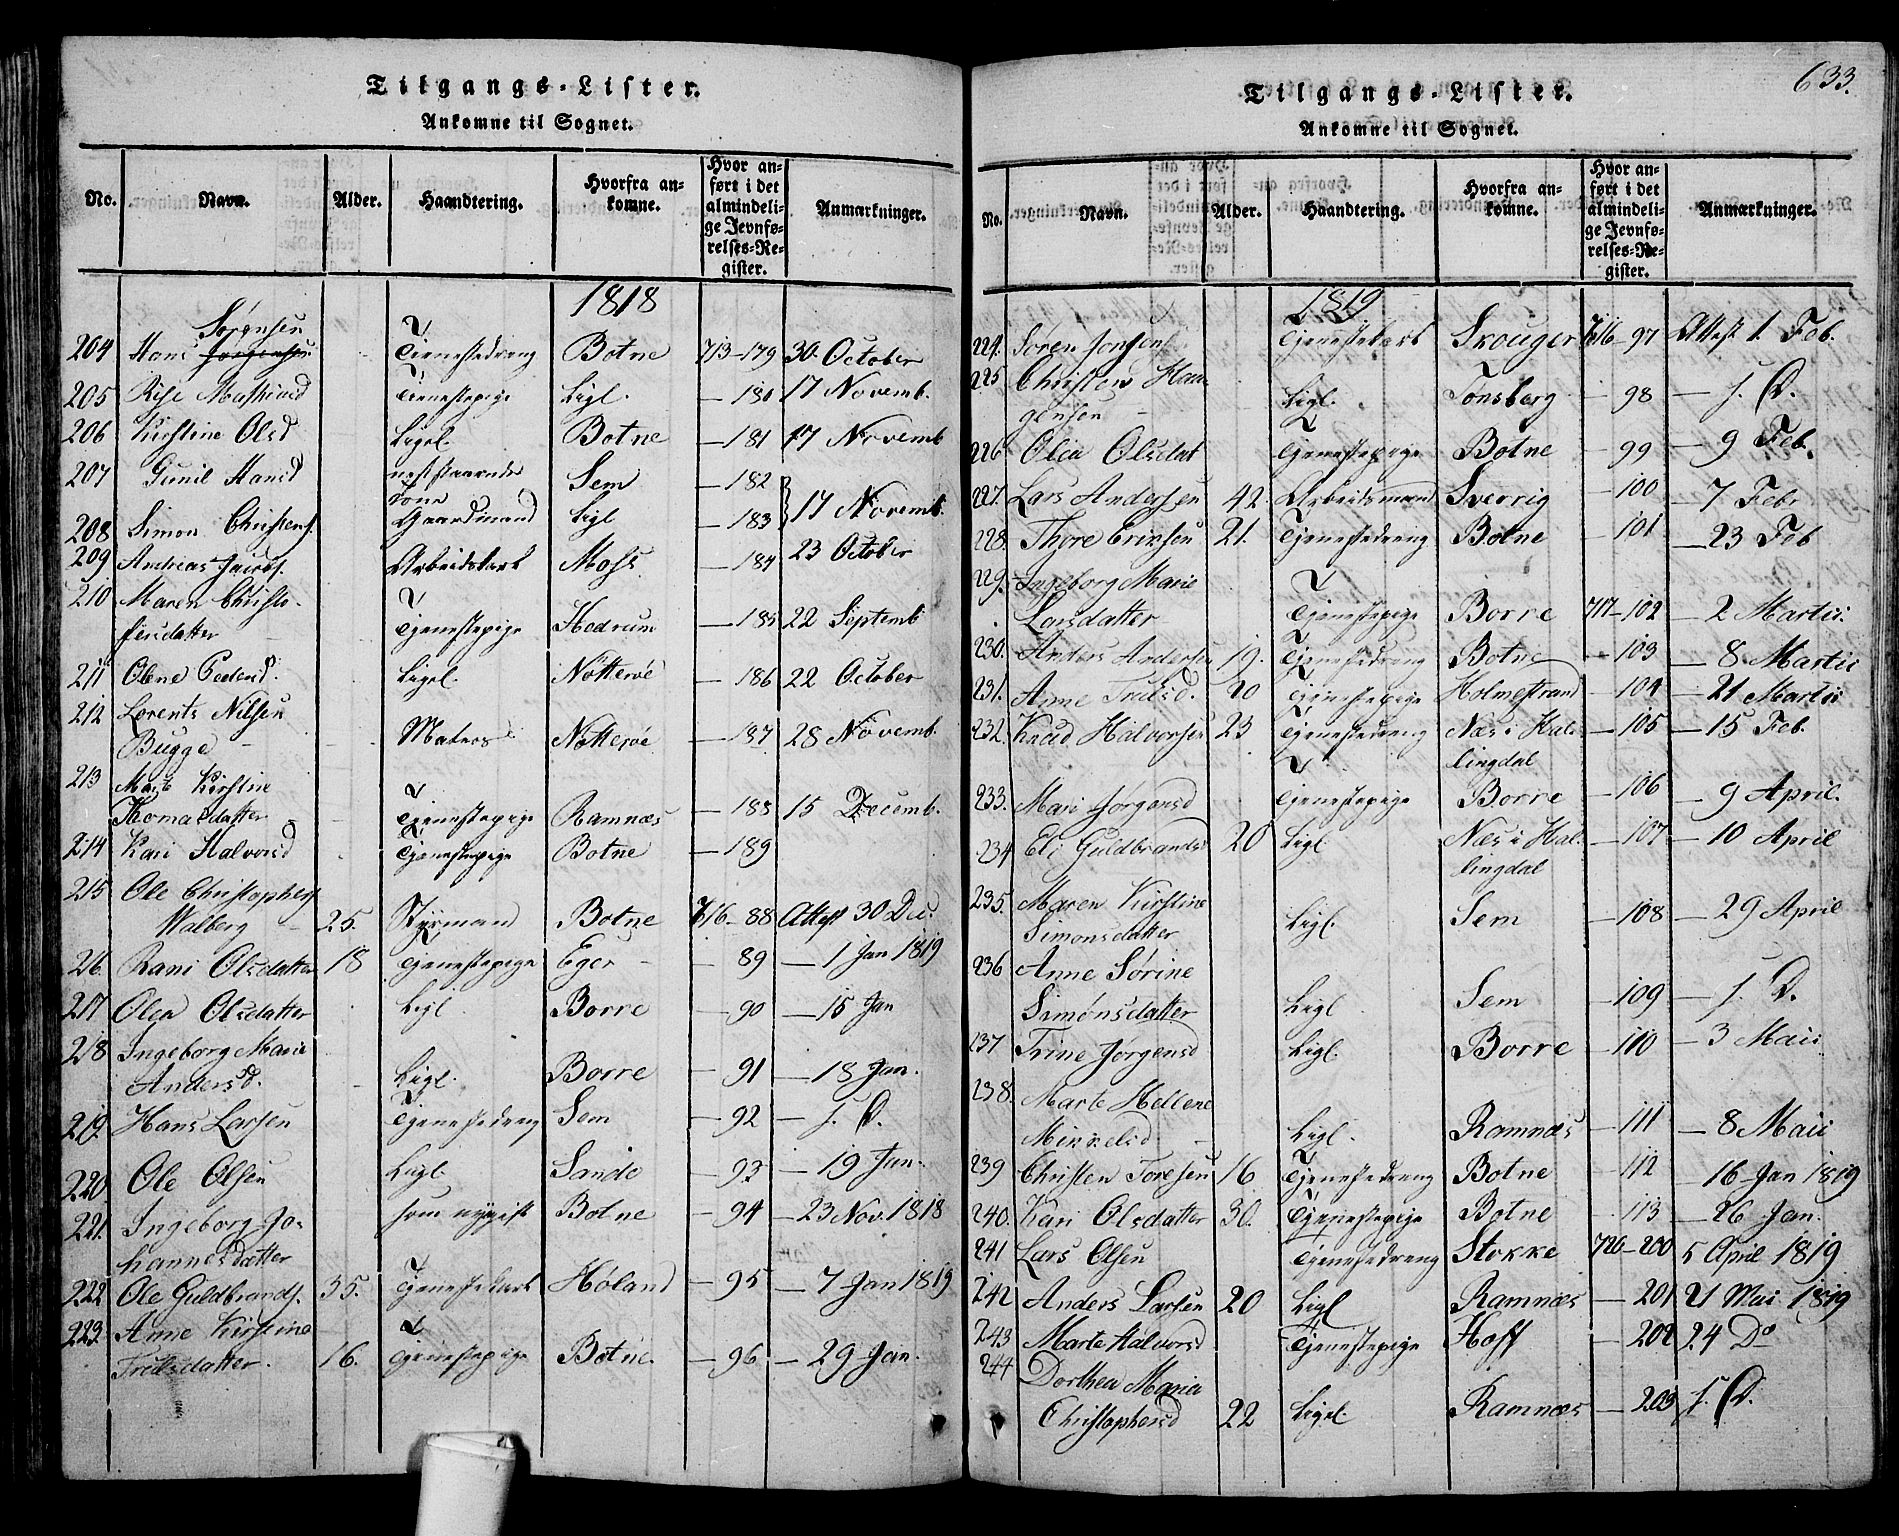 Tilgangs-Lister.
Ankomne til Sognet.
No. Navn. Alder. Haandtering. Hvorfra ankomne. Hvor anført i det almindelige Jevnførelses-Register. Anmærkninger.
1818
204 Hans Sørensen Tjenestedreng Botne 713-179 30 October
205 Tjenestepige Ligl. — 180 17 Novemb.
206 Kirstine Olsd Ligel. Botne — 181 17 Novemb
207 Gunil Hansd Sem — 182
208 Simon Christens. Gaardmand Ligl — 183 17 Novemb.
209 Andreas Jacobs. Arbeidskarl Moss — 184 23 October
210 Maren Christo-
fersdatter Tjenestepige Hedrum — 185 22 Septemb
211 Olene Pedersd. Ligel. Nötteröe — 186 22 October
212 Lorents Nilsen
Bugge Matros Nötteröe — 187 28 Novemb.
213 Marte Kirstine
Thomasdatter Tjenestepige Ramnæs — 188 15 Decemb.
214 Kari Halvorsd Tjenestepige Botne — 189
215 Ole Christophers
Walberg 25. Styrmand Botne 716-88 Attest 30 Dec.
216 Rani Olsdatter 18 Tjenestepige Eger — 89 — 1 Jan 1819
217 Olea Olsdatter Ligl. Borre — 90 — 15 Jan
218 Ingeborg Marie
Andersd. Ligl. Borre — 91 — 18 Jan.
219. Hans Larsen Tjenestedreng Sem — 92 — s. D.
220 Ole Olsen Ligl. Sande — 93 — 19 Jan.
221. Ingeborg Jo-
hannesdatter som nygift Botne — 94 — 23 Nov. 1818
222 Ole Guldbrands. 35. Tjenestekarl Høland — 95 — 7 Jan 1819
223. Anne Kirstine
Frilsdatter. 16. Tjenestepige Botne. — 96 — 29 Jan.
633.
Tilgangs-Lister.
Ankomne til Sognet.
No. Navn. Alder. Haandtering. Hvorfra ankomne. Hvor anført i det almindelige Jevnførelses-Register. Anmærkninger.
1819
224. Søren Jensen Tjenestekarl Skouger 716-97 Attest 1. Feb.
225 Christen Haa-
gensen Ligl. Tønsberg — 98 — s. D.
226 Olea Olsdat Tjenestepige Botne — 99 — 9 Feb.
227. Lars Andersen 42. Arbeidsmand Sverrig — 100 — 7 Febr
228. Thore Eriksen 21. Tjenestedreng Botne — 101 — 23 Feb
229. Ingeborg Marie
Larsdatter Tjenestepige Borre 717-102 — 2 Martii.
230. Anders Andersen 19. Tjenestedreng Botne — 103 — 8 Martii
231. Anne Trulsd. 20 Tjenestepige Holmestrand — 104 — 21 Martii
232. Knud Halvorsen 23 Tjenestedreng Næs i Hal-
lingdal — 105 — 15 Feb.
233. Mari Jørgensd Tjenestepige Borre — 106 — 9 April.
234 Eli Guldbrandsd 20 Ligl Næs i Hal-
lingdal — 107 — 10 April
235. Maren Kirstine
Simonsdatter Ligl. Sem — 108 — 29 April
236 Anne Sørine
Simonsdatter Ligl Sem — 109 — s. D.
237 Trine Jørgensd Ligl. Borre — 110 — 3 Maii
238. Marte Hellene
Mikkelsd Ligl. Ramnæs — 111 — 8 Maii
239 Christen Toresen 16 Tjenestedreng Botne — 112 — 16 Jan 1819
240. Kari Olsdatter 30. Tjenestepige Botne — 113 — 26 Jan.
241 Lars Olsen Tjenestedreng Stokke 726-200 5 April 1819
242 Anders Larsen 20 Ligl Ramnæs — 201 21 Mai 1819
243 Marte Halvorsd Tjenestepige Hoff — 202 24 Do
244 Dorthea Maria
Christophersd 22 Ligel. Ramnæs — 203 s. D.